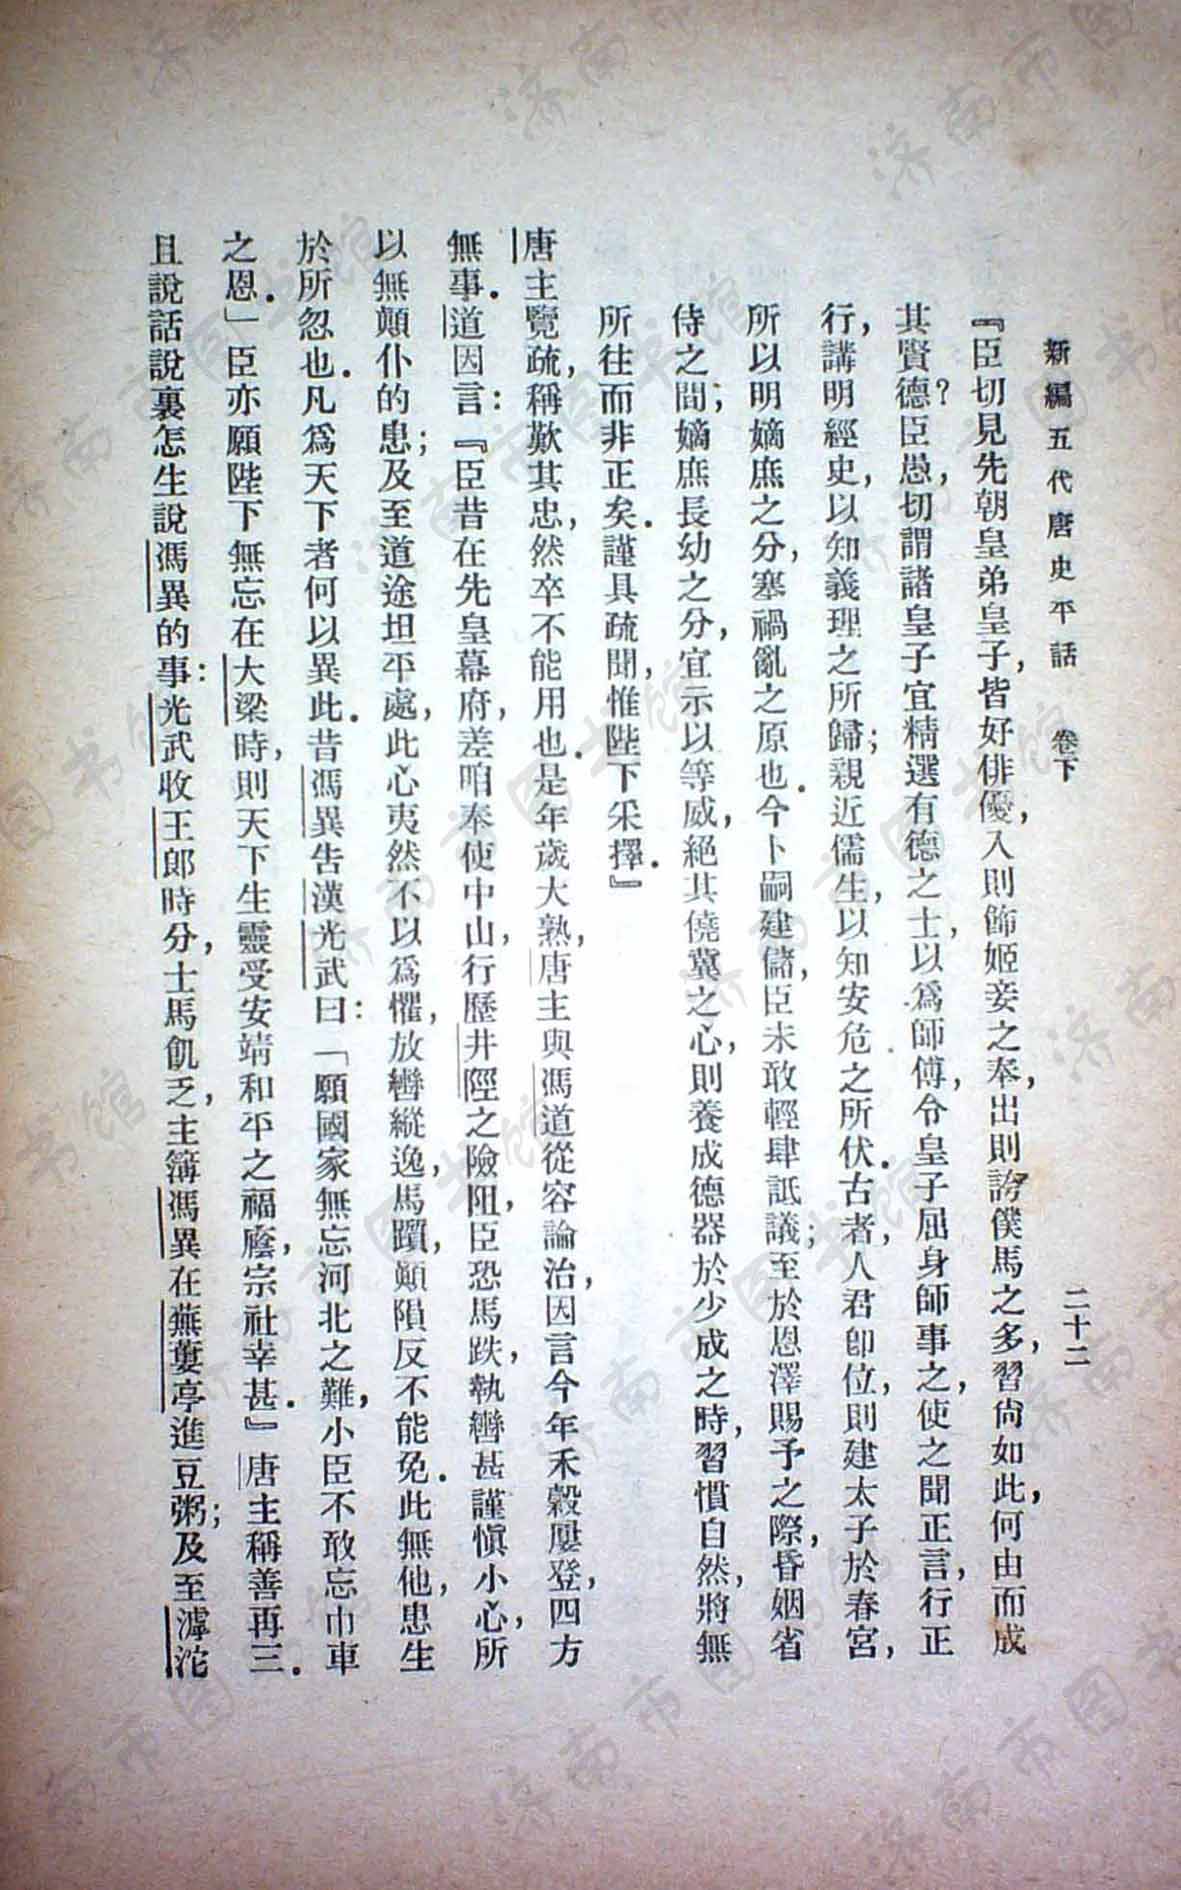 新編五代唐史平話　卷下　二十二
『臣切見先朝皇弟皇子，皆好俳優，入則飾姬妾之奉，出則誇僕馬之多，習尙如此，何由而成
其賢德？臣愚，切謂諸皇子宜精選有德之士，以爲師傅，令皇子屈身師事之，使之聞正言，行正
行，講明經史，以知義理之所歸；親近儒生，以知安危之所伏．古者，人君卽位，則建太子於春宮，
所以明嫡庶之分，塞禍亂之原也．今卜嗣建儲，臣未敢輕肆詆議；至於恩澤賜予之際，昏姻省
侍之間；嫡庶長幼之分，宜示以等威，絕其僥冀之心，則養成德器於少成之時，習慣自然，將無
所往而非正矣．謹具疏聞，惟陛下采擇．』
唐主覽疏，稱歎其忠，然卒不能用也．是年歲大熟，唐主與馮道從容論治，因言今年禾穀屢登，四方
無事．道因言：『臣昔在先皇幕府，差咱奉使中山，行歷井陘之險阻，臣恐馬跌，執轡甚謹愼小心，所
以無顚仆的患；及至道途坦平處，此心夷然不以爲懼，放轡縱逸，馬躓，顚隕反不能免．此無他，患生
於所忽也．凡爲天下者何以異此．昔馮異告漢光武曰：「願國家無忘河北之難，小臣不敢忘巾車
之恩．」臣亦願陛下無忘在大梁時，則天下生靈受安靖和平之福廕，宗社幸甚．』唐主稱善再三．
且說話說裏怎生說馮異的事：光武收王郎時分，士馬飢乏，主簿馮異在蕪蔞亭進豆粥；及至滹沱
济南市图书馆